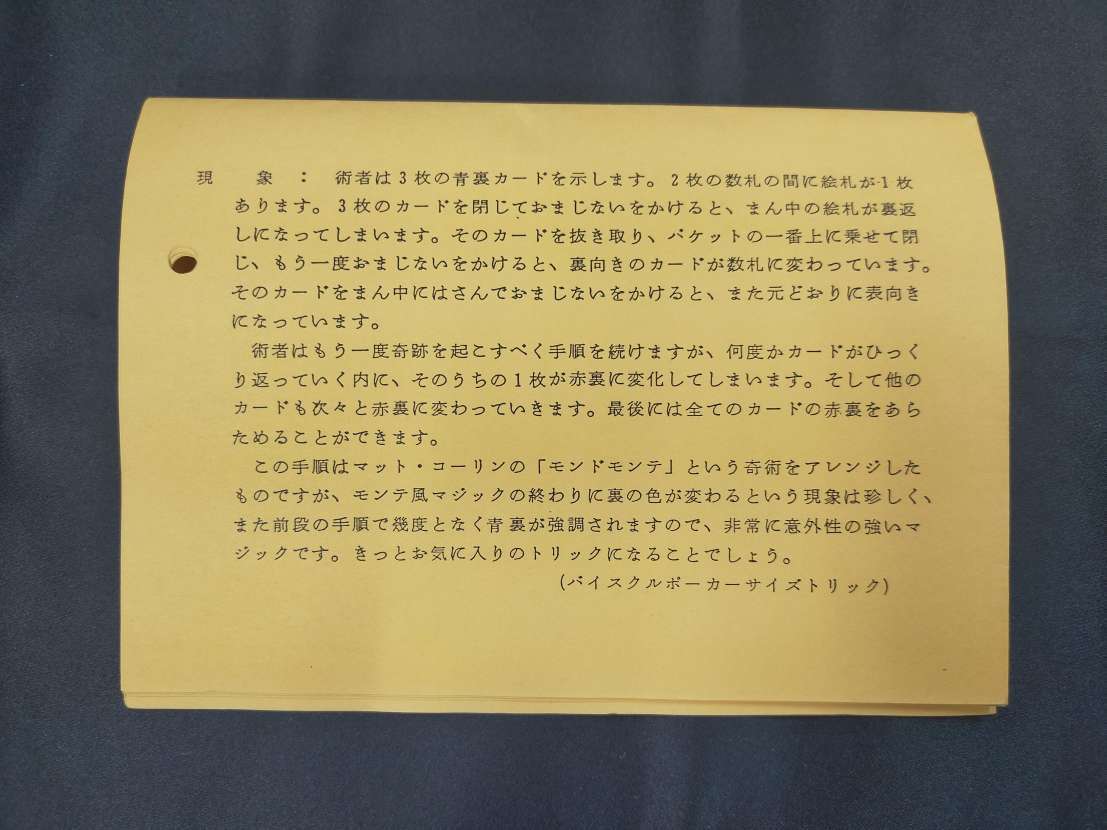 現　象： 術者は3枚の青裏カードを示します。2枚の数札の間に絵札が1枚
あります。3枚のカードを閉じておまじないをかけると、まん中の絵札が裏返
しになってしまいます。そのカードを抜き取り、パケットの一番上に乗せて閉
じ、もう一度おまじないをかけると、裏向きのカードが数札に変わっています。
そのカードをまん中にはさんでおまじないをかけると、また元どおりに表向き
になっています。
術者はもう一度奇跡を起こすべく手順を続けますが、何度かカードがひっく
り返っていく内に、そのうちの1枚が赤裏に変化してしまいます。そして他の
カードも次々と赤裏に変わっていきます。最後には全てのカードの赤裏をあら
ためることができます。
この手順はマット・コーリンの「モンドモンテ」という奇術をアレンジした
ものですが、モンテ風マジックの終わりに裏の色が変わるという現象は珍しく、
また前段の手順で幾度となく青裏が強調されますので、非常に意外性の強いマ
ジックです。きっとお気に入りのトリックになることでしょう。
(バイスクルポーカーサイズトリック)